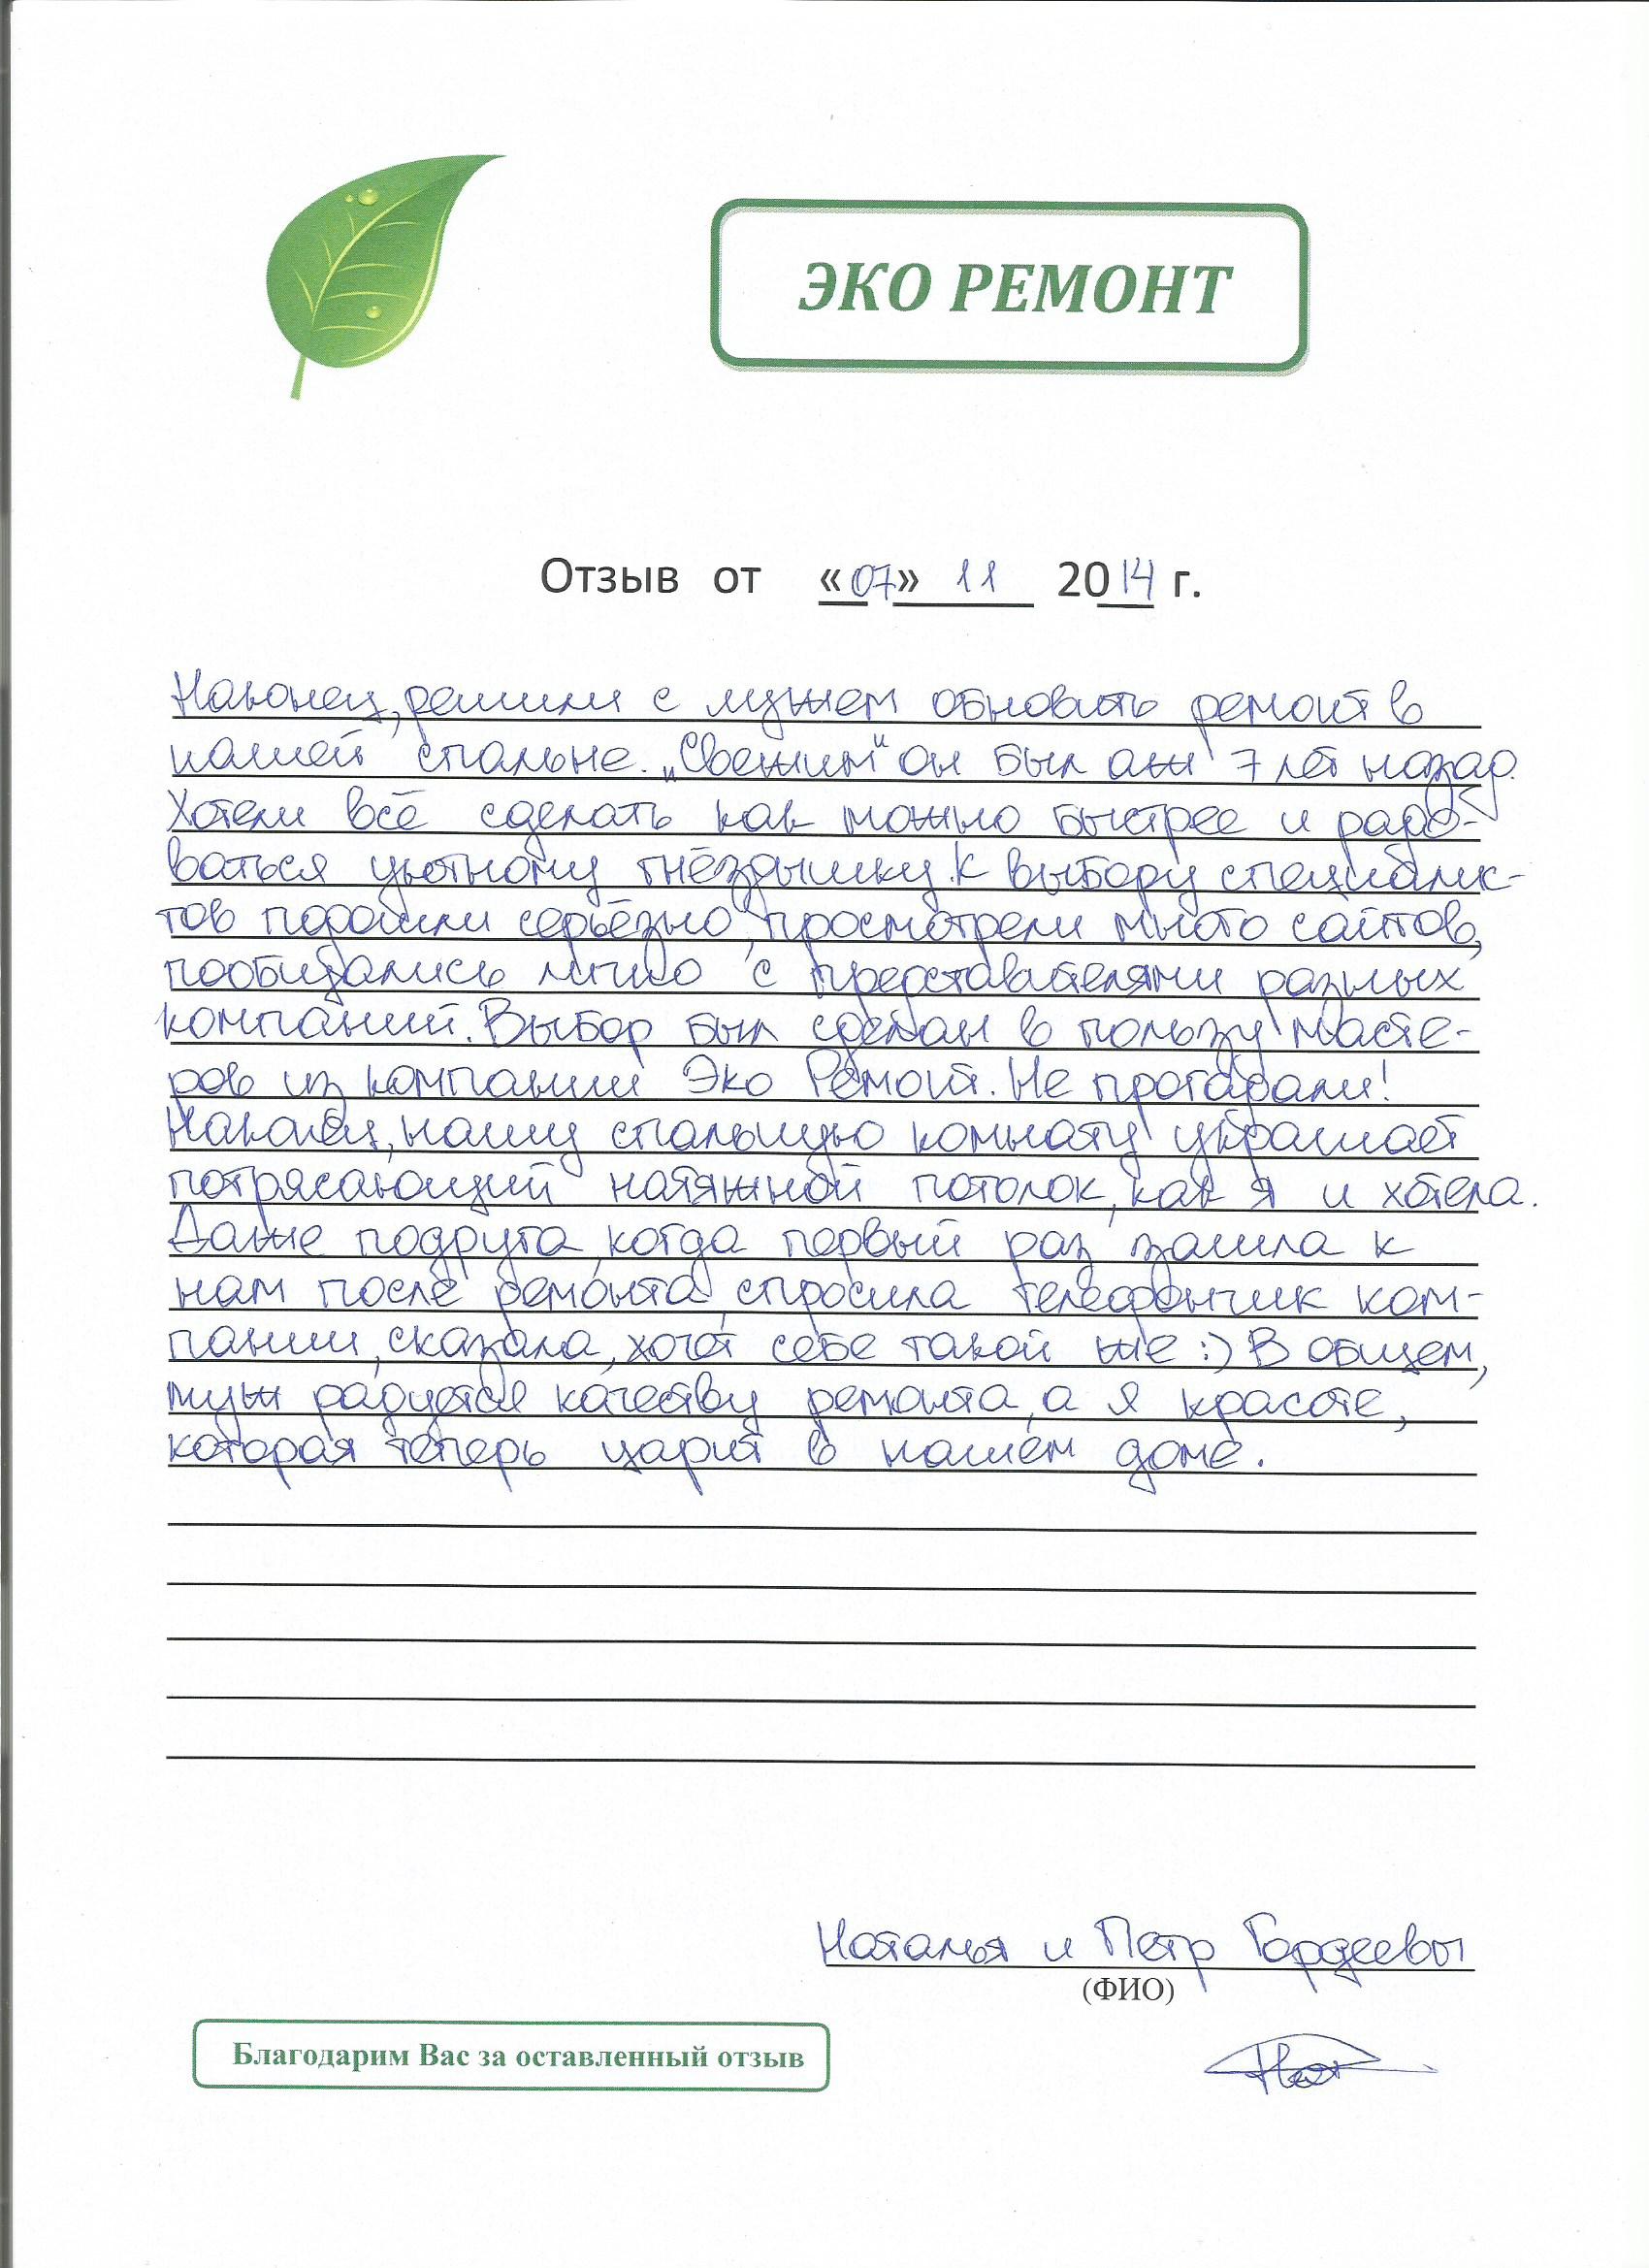 ЭКО РЕМОНТ
Отзыв от «07» 11 2014 г.
Наконец, решили с мужем обновить ремонт в
нашей спальне. „Свежим“ он был аж 7 лет назад.
Хотели всё сделать как можно быстрее и радо-
ваться уютному гнёздышку. К выбору специалис-
тов подошли серьёзно, просмотрели много сайтов,
пообщались лично с представителями разных
компаний. Выбор был сделан в пользу масте-
ров из компании Эко Ремонт. Не прогадали!
Наконец, нашу спальную комнату украшает
потрясающий натяжной потолок, как я и хотела.
Даже подруга, когда первый раз зашла к
нам после ремонта, спросила телефончик ком-
пании, сказала, хочет себе такой же :) В общем,
муж радуется качеству ремонта, а я красоте,
которая теперь царит в нашем доме.
Наталья и Петр Гордеевы
(ФИО)
Благодарим Вас за оставленный отзыв